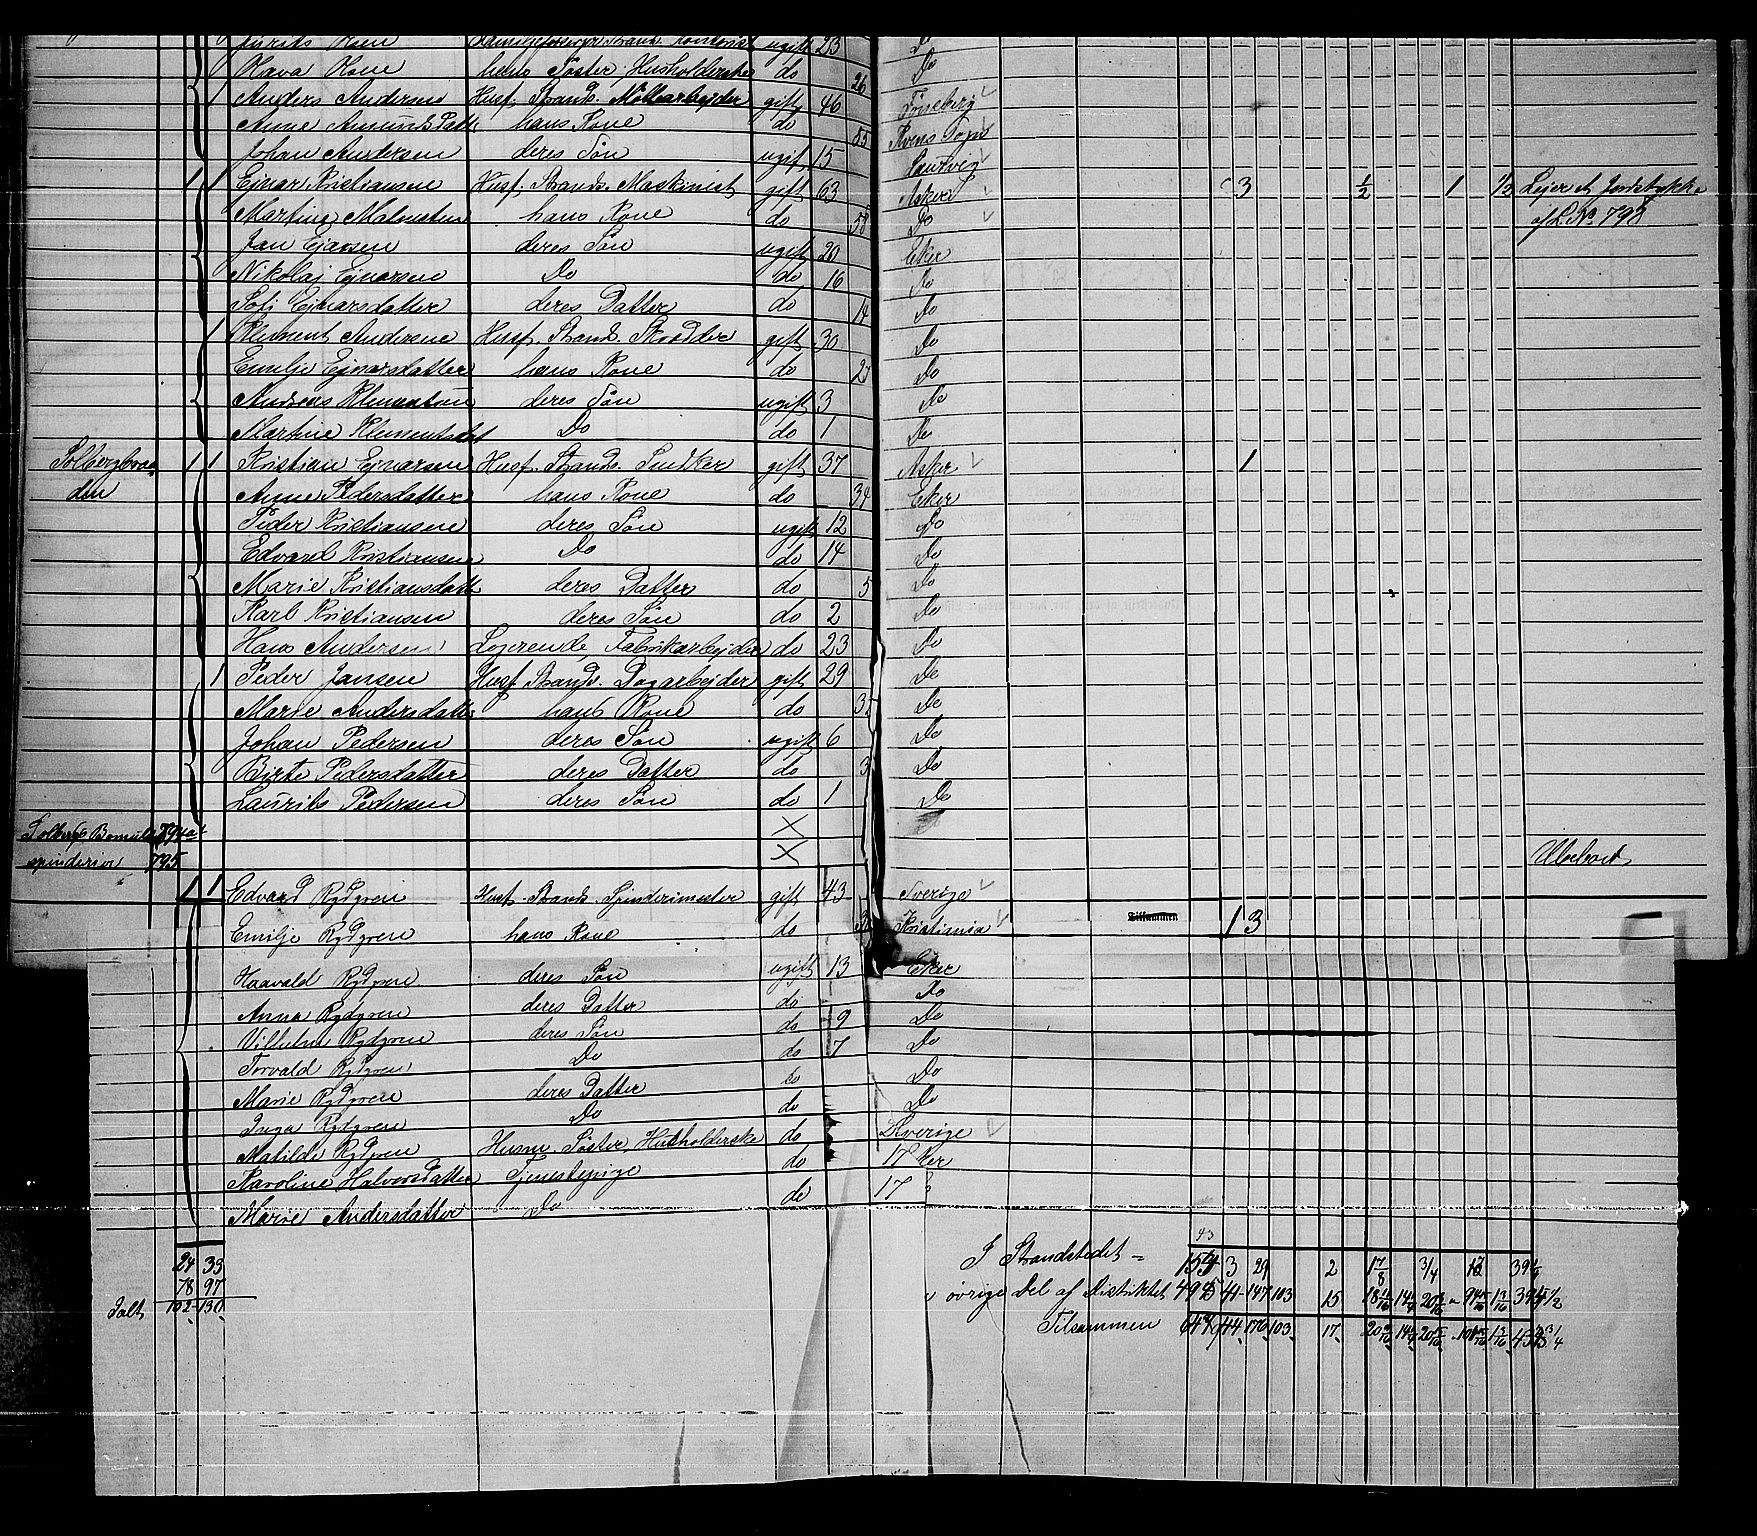 Olava Olsen hans Søster, Husholderske do 26 Do
1 Anders Andersen Husf. Strands. Møllearbejder gift 46 Tønsberg
Anne Amundsdatt hans Kone do 55 Sogn
Johan Andersen deres Søn ugift 15 Laurvig
1 1 Ejnar Kristiansen Husf. Strands. Maskinist gift 63 Asker 3 1/2 1 1/2 Lejer af Jordstykke
Martine hans Kone do 58 Do af L.No 793
Jan Ejnarsen deres Søn ugift 20 Eker
Nikolaj Ejnarsen Do do 16 Do
Sofi Ejnarsdatter deres Datter do 14 Do
1 Klement Andersen Husf. Strands. Skrædder gift 30 Do
Emilje Ejnarsdatter hans Kone do 27 Do
Andreas Klementsen deres Søn ugift 3 Do
Martine Klementsdat Do do 1 Do
Solbergbraa 1 1 Kristian Ejnarsen Husf. Strands. Snedker gift 37 Asker 1
den Anne Pedersdatter hans Kone do 34 Eker
Peder Kristiansen deres Søn ugift 12 Do
Edvard Kristiansen Do do 14 Do
Marie Kristiansdatt deres Datter do 5 Do
Karl Kristiansen deres Søn do 2 Do
Hans Andersen Logerende, Fabrikarbejder do 23 Do
1 Peder Jansen Husf. Strands. Dagarbejder gift 29 Do
Marie Andersdatter hans Kone do Do
Johan Pedersen deres Søn ugift 6 Do
Birte Pedersdatter deres Datter do 3 Do
Laurits Pedersen deres Søn do 1 Do
Solbergs Bomulds 794 X
spinderier 795 X Ubeboet
1 1 Edvard Rydgren Husf. Strands. Spinderimester gift 43 Sverige
Emilje Rydgren hans Kone do Kristiania Tilsammen 13
Haavald Rydgren deres Søn ugift 13 Eker
Anna Rydgren deres Datter do Do
Vilhelm Rydgren deres Søn do 9 Do
Torvald Rydgren Do do 7 Do
Marie Rydgren deres Datter do Do
Inga Rydgren Do do Do
Matilde Rydgren Husm. Søster, Husholderske do Sverige
Karoline Halvorsdatter Tjenestepige do 17 ker
Marie Andersdatter Do do 17
43
24 33 I Strandstedet 154 3 29 2 1 7/8 3/4 39 1/4
78 97 øvrige Del af Distriktet 495 41 147 103 15
Ialt 102 130 Tilsammen 649 44 176 103 17